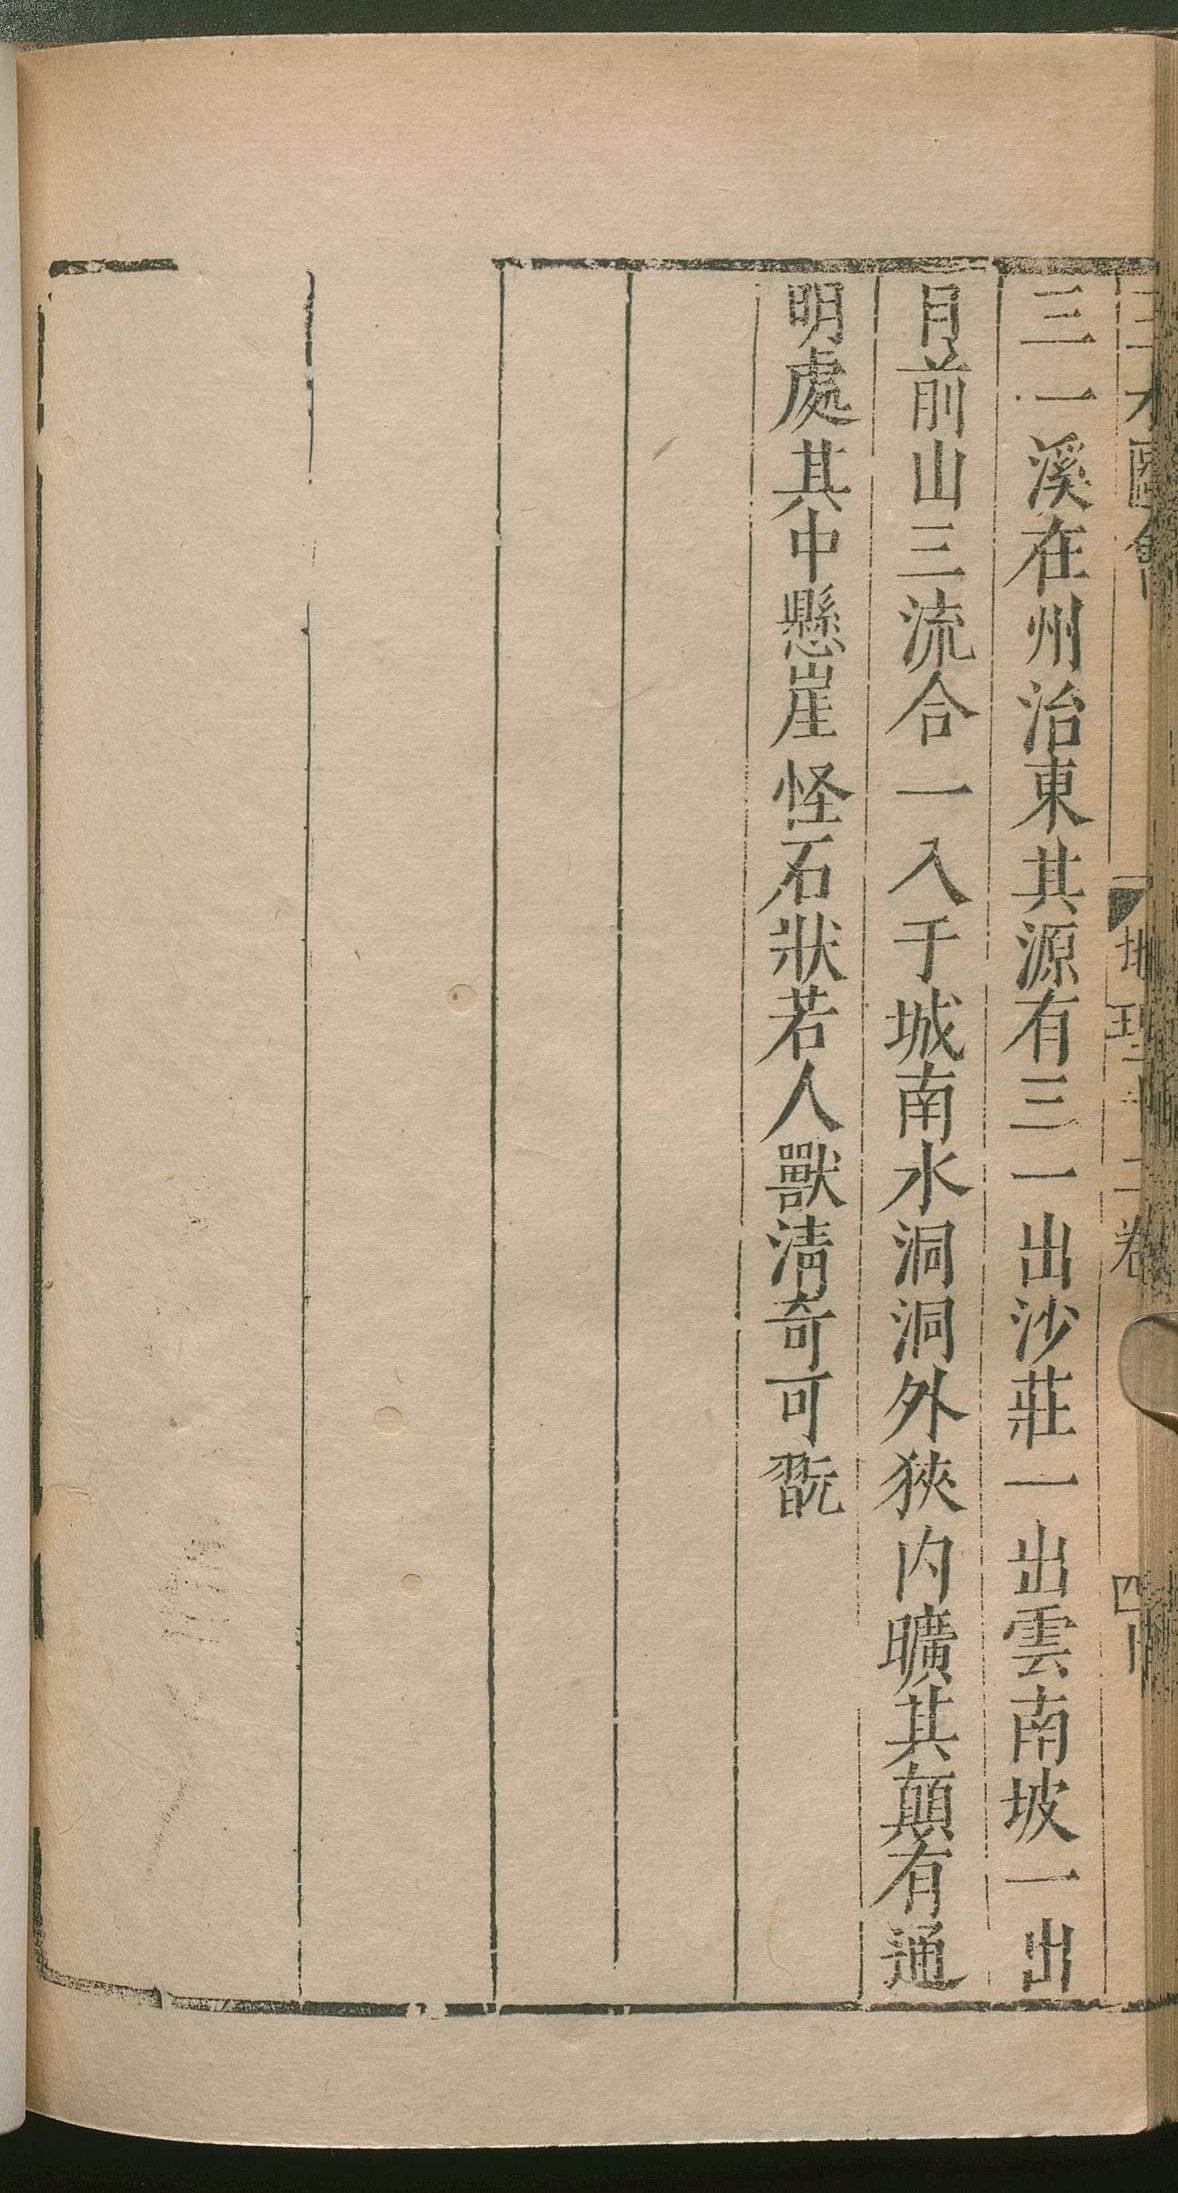 三才圖會 地理十二卷 四十
三一溪在州治東其源有三一出沙莊一出雲南坡一出
目前山三流合一入于城南水洞洞外狹内曠其顛有通
明處其中懸崖怪石狀若人獸清奇可翫